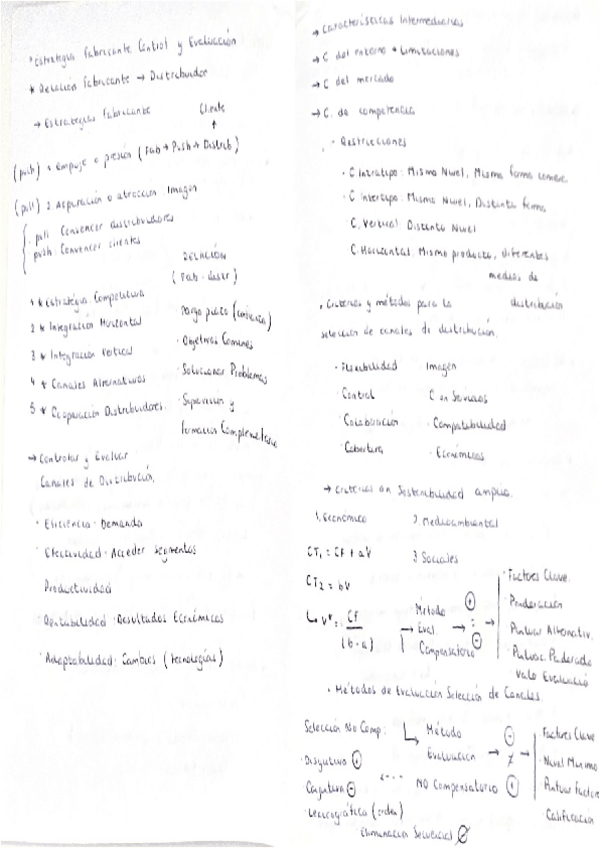 * Estrategia Fabricante Control y Evaluación
* Relación Fabricante → Distribuidor
→ Estrategias Fabricante
Cliente
↑
(push) 1 empuje o presión (Fab → Push → Distrib)
(pull) 2 Aspiración o atracción: Imagen
pull: Convencer distribuidores
push: Convencer clientes
RELACIÓN
(Fab - distr)
1 * Estrategia Competitiva
· Largo plazo (confianza)
2 * Integración Horizontal
· Objetivos Comunes
3 * Integración Vertical
· Solucionar Problemas
4 * Canales Alternativos
5 * Cooperación Distribuidores
· Supervisión y
formación Complementaria
→ Controlar y Evaluar
Canales de Distribución.
· Eficiencia: Demanda
· Efectividad: Acceder segmentos
Productividad
Rentabilidad: Resultados Económicos
· Adaptabilidad: Cambios (tecnologías)
→ Características Intermediarios
→ C del entorno + Limitaciones
→ C del mercado
→ C. de competencia
· Restricciones
· C Intratipo: Mismo Nivel, Misma forma comerc.
· C intertipo: Mismo Nivel, Distinta forma
C. Vertical: Distinto Nivel
C. Horizontal: Mismo producto, diferentes
medios, de
distribución
· Criterios y métodos para la
selección de canales de distribución.
· Flexibilidad Imagen
· Control C en Servicios
· Colaboración · Compatibilidad
· Cobertura · Económicos
→ Criterios en Sostenibilidad amplia.
1. Económico 2 Medioambiental
CT₁ = CF + aV 3 Sociales
CT₂ = bV
↳ V* = CF
(b - a)
→ Método
Eval.
Compensatorio
→ ⊕ : ⊖ →
· Factores Clave.
· Ponderación
· Puntuar Alternativ.
· Puntuac. Ponderada
Valo Evaluació
· Métodos de Evaluación Selección de Canales.
Selección No Comp:
↳ Método
Evaluación
NO Compensatorio
→ ⊖ ≠ ⊕ →
Factores Clave
· Nivel Mínimo
Puntuar Factore
· Calificación
· Disyuntivo ⊕
Conjuntivo ⊖
· Lexicográfica (orden)
· Eliminación Secuencial ∅